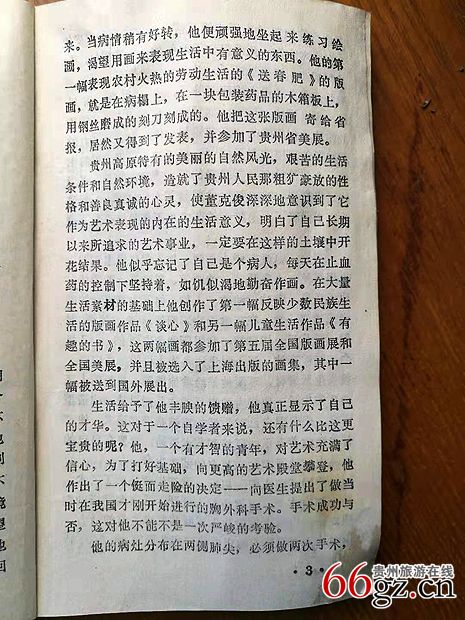 来。当病情稍有好转，他便顽强地坐起来练习绘
画，渴望用画来表现生活中有意义的东西。他的第
一幅表现农村火热的劳动生活的《送春肥》的版
画，就是在病榻上，在一块包装药品的木箱板上，
用钢丝磨成的刻刀刻成的。他把这张版画寄给省
报，居然又得到了发表，并参加了贵州省美展。
贵州高原特有的美丽的自然风光，艰苦的生活
条件和自然环境，造就了贵州人民那粗犷豪放的性
格和善良真诚的心灵，使董克俊深深地意识到了它
作为艺术表现的内在的生活意义，明白了自己长期
以来所追求的艺术事业，一定要在这样的土壤中开
花结果。他似乎忘记了自己是个病人，每天在止血
药的控制下坚持着，如饥似渴地勤奋作画。在大量
生活素材的基础上他创作了第一幅反映少数民族生
活的版画作品《谈心》和另一幅儿童生活作品《有
趣的书》，这两幅画都参加了第五届全国版画展和
全国美展，并且被选入了上海出版的画集，其中一
幅被送到国外展出。
生活给予了他丰腴的馈赠，他真正显示了自己
的才华。这对于一个自学者来说，还有什么比这更
宝贵的呢？他，一个有才智的青年，对艺术充满了
信心，为了打好基础，向更高的艺术殿堂攀登，他
作出了一个铤而走险的决定——向医生提出了做当
时在我国才刚开始进行的胸外科手术。手术成功与
否，这对他不能不是一次严峻的考验。
他的病灶分布在两侧肺尖，必须做两次手术，
·3·
贵州旅游在线
66gz.cn